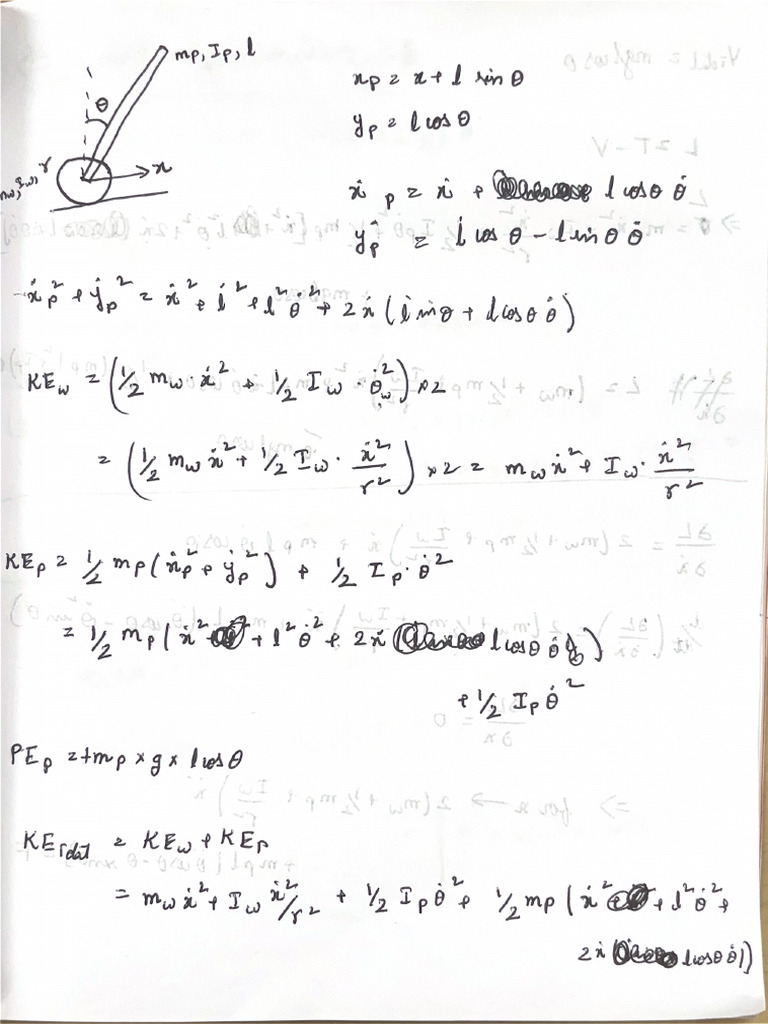 m_p, I_p, l
θ
x
r
x_p = x + l sin θ
y_p = l cos θ
ẋ_p = ẋ + l cosθ θ̇
ẏ_p = l̇ cos θ − l sin θ θ̇
ẋ_p² + ẏ_p² = ẋ² + l̇² + l² θ̇² + 2ẋ (l̇ sinθ + l cosθ θ̇)
KE_w = (1/2 m_w · ẋ² + 1/2 I_w · θ̇_w²) × 2
= (1/2 m_w ẋ² + 1/2 I_w · ẋ²/r²) × 2 = m_w ẋ² + I_w · ẋ²/r²
KE_p = 1/2 m_p (ẋ_p² + ẏ_p²) + 1/2 I_p · θ̇²
= 1/2 m_p (ẋ² + l² θ̇² + 2ẋ ( l cosθ θ̇))
+ 1/2 I_p θ̇²
PE_p = + m_p × g × l cos θ
KE_Total = KE_w + KE_p
= m_w ẋ² + I_w ẋ²/r² + 1/2 I_p θ̇² + 1/2 m_p (ẋ² + l² θ̇² +
2ẋ ( l cosθ θ̇))